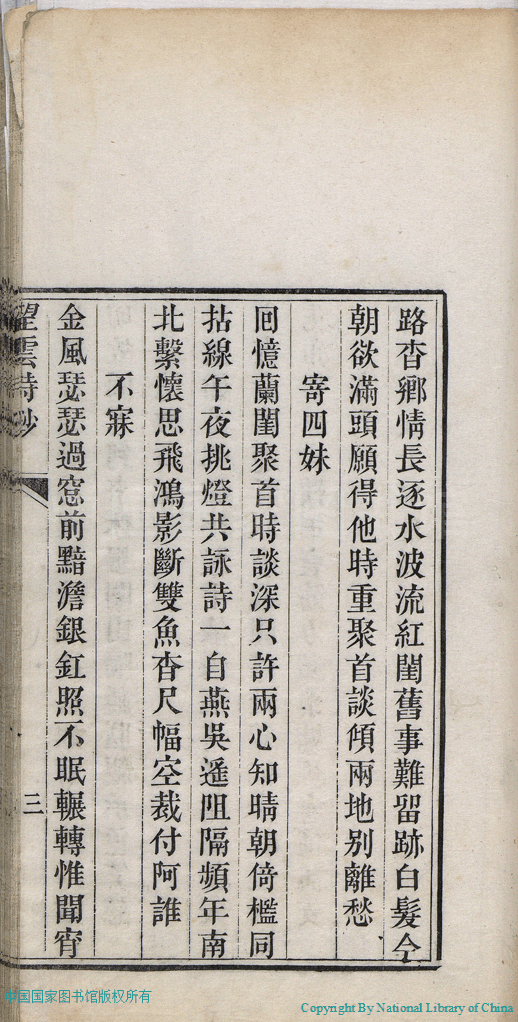 路杳鄉情長逐水波流紅閨舊事難留跡白髮今
朝欲滿頭願得他時重聚首談傾兩地别離愁
寄四妹
囘憶蘭閨聚首時談深只許兩心知晴朝倚檻同
拈線午夜挑燈共詠詩一自燕吳遙阻隔頻年南
北繫懷思飛鴻影斷雙魚杳尺幅空裁付阿誰
不寐
金風瑟瑟過窓前黯澹銀釭照不眠輾轉惟聞宵
望雲詩鈔
三
中国国家图书馆版权所有
Copyright By National Library of China